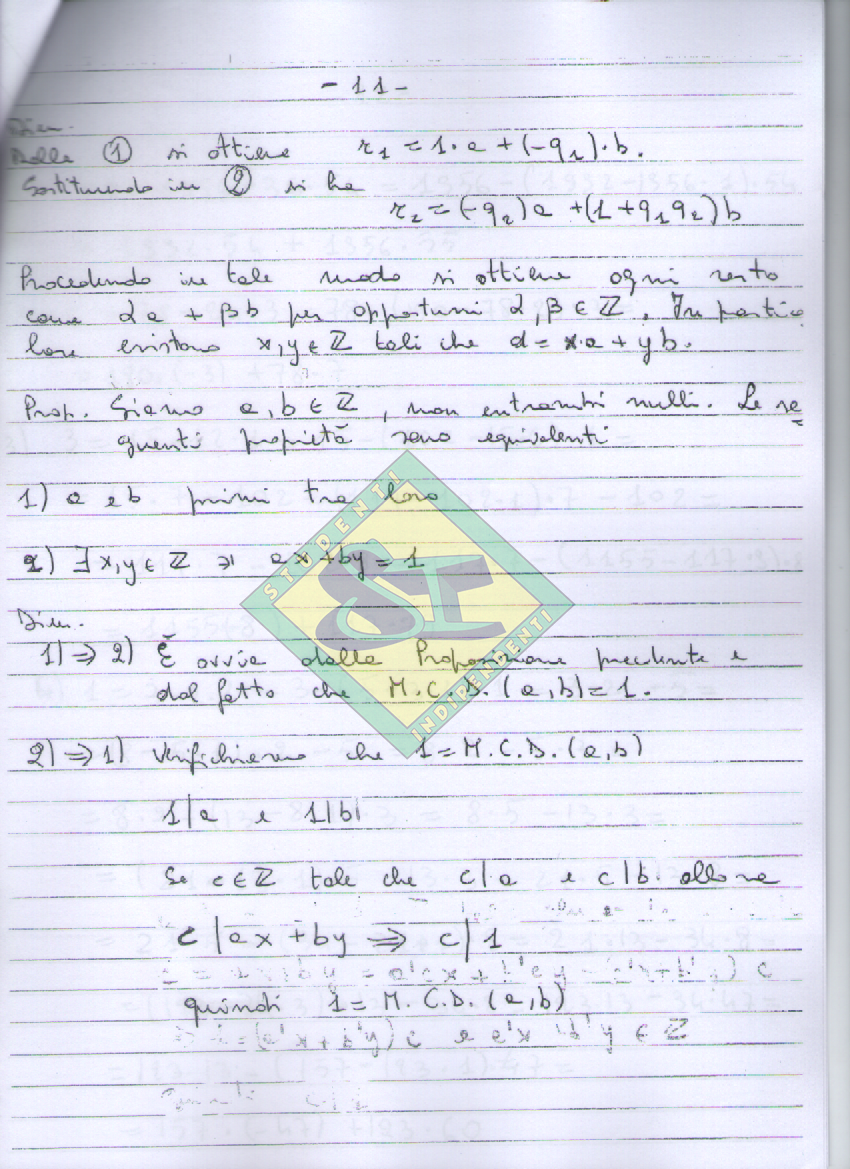 - 11 -
Dim.
Dalla ① si ottiene r₁ = 1·a + (-q₁)·b.
Sostituendo in ② si ha
r₂ = (-q₂)a + (1+q₁q₂)b
Procedendo in tale modo si ottiene ogni resto
come αa + βb per opportuni α, β ∈ ℤ. In partico
lare esistono x, y ∈ ℤ tali che d = x·a + yb.
Prop. Siano a, b ∈ ℤ, non entrambi nulli. Le se
guenti proprietà sono equivalenti
1) a e b primi tra loro
2) ∃ x, y ∈ ℤ ∋' ax + by = 1
Dim.
1) ⇒ 2) È ovvia dalla Proposizione precedente e
dal fatto che M.C.D.(a,b) = 1.
2) ⇒ 1) Verifichiamo che 1 = M.C.D.(a,b)
1|a e 1|b
Se c ∈ ℤ tale che c|a e c|b allora
c | ax + by ⇒ c|1
quindi 1 = M.C.D.(a,b)
= (a'x + b'y)c e a'x b'y ∈ ℤ
STUDENTI
SI
INDIPENDENTI